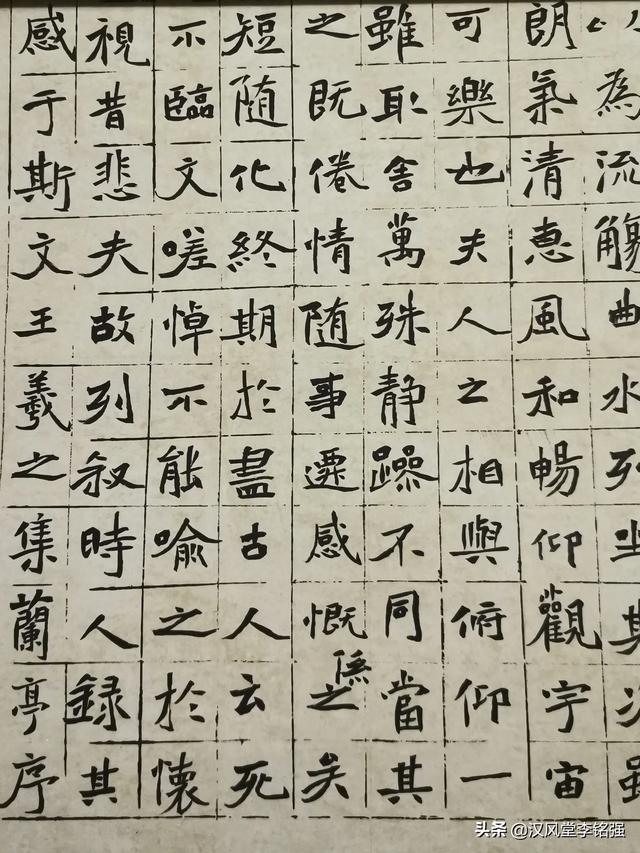 以為流觴曲水列坐其次雖
朗氣清惠風和暢仰觀宇宙
可樂也夫人之相與俯仰一
雖取舍萬殊静躁不同當其
之既倦情随事遷感慨係之矣
短随化終期於盡古人云死
不臨文嗟悼不能喻之於懷
視昔悲夫故列叙時人録其
感于斯文王羲之集蘭亭序
头条 @汉风堂李铭强